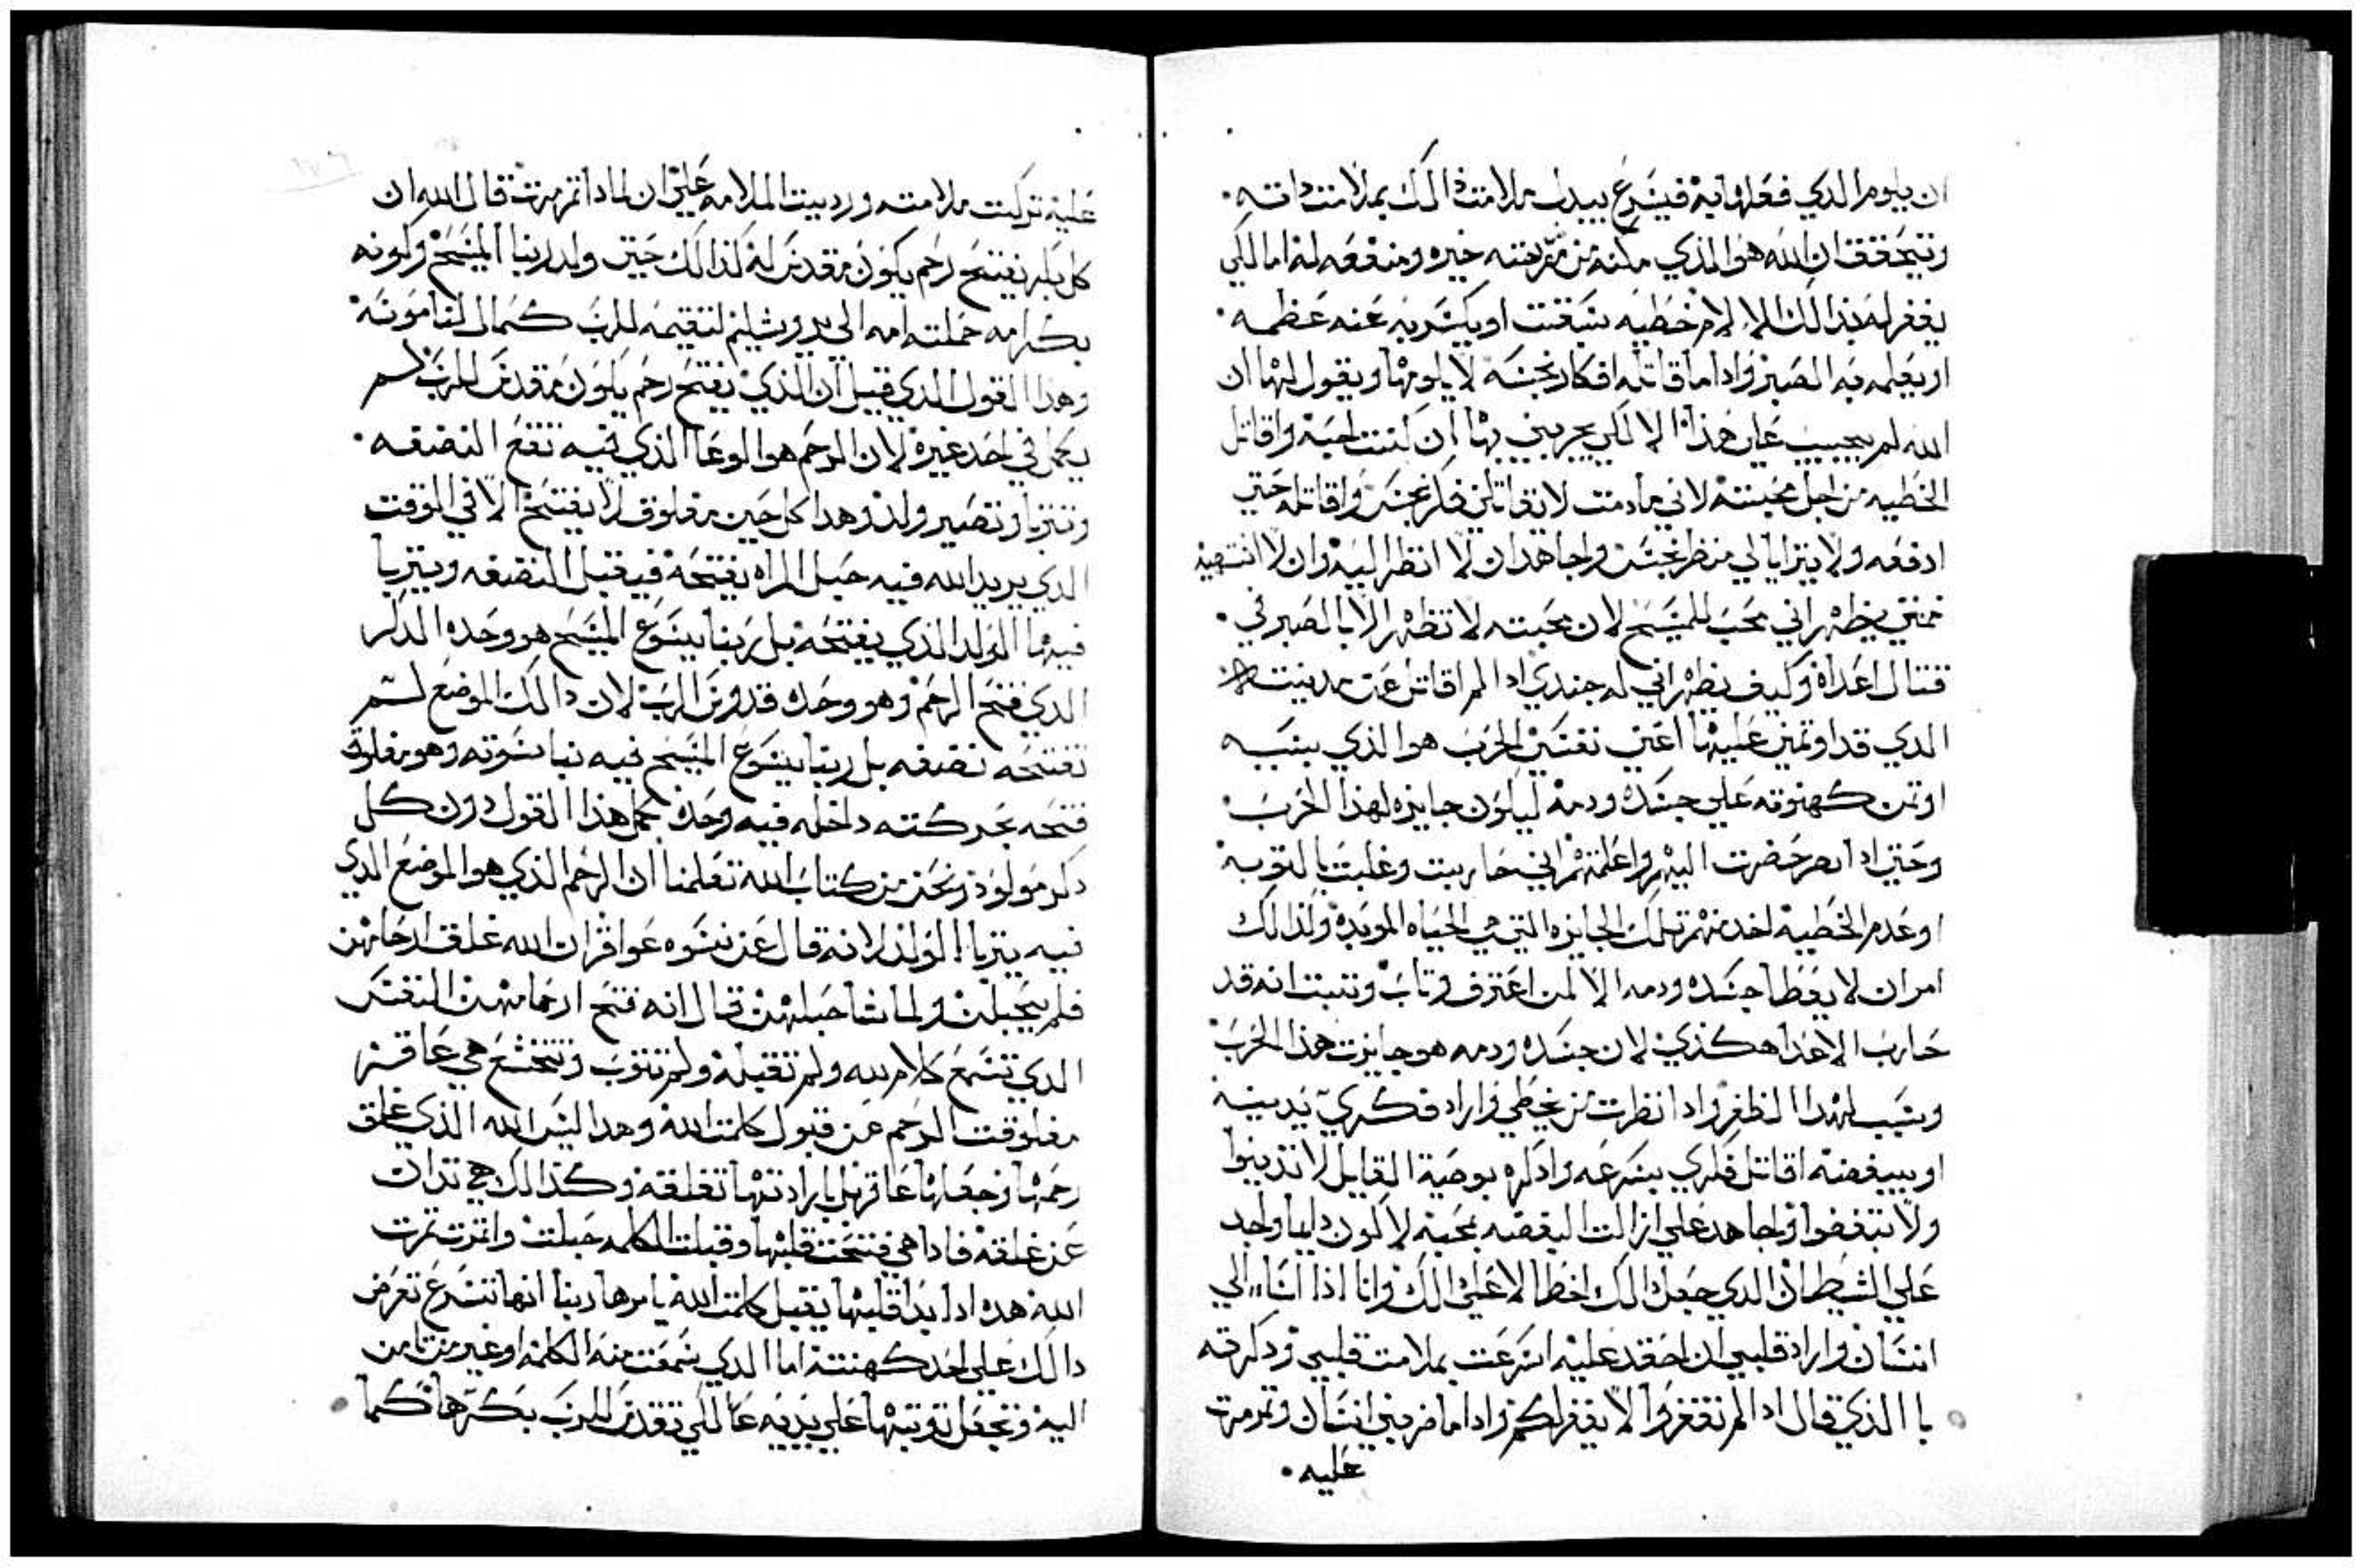 ان يلوم الدي فعلها به فيسرع يبدل ملامت دالك بملامت داته
وتيحقق ان الله هو الذي مكنه من مقربته خيره ومنفعه له اما لكي
يغفر له بذالك الالام خطيه سبقت او يكسر به عنه عظمه
او يعلمه به الصبر وادا ما قاتله افكار نجسه لا يلومها ويقول لها ان
الله لم يجيب علي هذا الا لكي يجربني بها ان كنت احبه واقاتل
الخطيه من اجل محبته لاني مادمت لا يقاتلني فكر نجس واقاتله حتي
ادفعه ولا يترايا لي منظر نجس واجاهد ان لا انظر اليه وان لا اشتهيه
فمتي يظهر اني محب للمسيح لان محبته لا تظهر الا بالصبر في
قتال اعداه وكيف يظهر اني له جندي ادا لم اقاتل عن مدينته
الدي قد اوتمني عليها اعني نفسي الحرب هو الذي بسببه
اوتمن كهنوته علي جسده ودمه ليكون جايزه لهذا الحرب
وحتي ادا حضرت اليهم واعلمتهم اني حاربت وغلبت بالتوبه
وعدم الخطيه اخد منهم تلك الجايزه التي هي الحياه الموبده ولذالك
امر ان لا يعطا جسده ودمه الا لمن اعترف وتاب وتتبت انه قد
حارب الاعدا هكذي لان جسده ودمه هو جايزت هذا الحرب
وسبب لهدا الظفر وادا نظرت من يخطي واراد فكري يدينه
او يبغضه اقاتل فكري بسرعه وادكره بوصية القايل لا تدينوا
ولا تبغضوا واجاهد علي ازالت البغضه بمحبه لا كون دايما واجد
علي الشيطان الدي جعل دالك اخطا لا علي دالك وانا اذا اسا الي
انسان واراد قلبي ان احقد عليه اسرعت بملامت قلبي ودكرته
با الذي قال ادا لم تغفروا لا يغفر لكم وادا ما ضربني انسان وتمرمرت
عليه
عليه تركت ملامته ورديت الملامه علي ان لمادا تمرمرت قال الله ان
كل بكر يفتح رحم يكون مقدس له كذالك حين ولد ربنا المسيح وكونه
بكر امه حملته امه الي يروشليم لتقيمه للرب كمال الناموسه
وهدا القول الدي قيل ان الذي يفتح رحم يكون مقدس للرب لم
يكمل في احد غيره لان الرحم هو الوعا الذي فيه تقع النضفه
وتتربا وتصير ولد وهدا كل حين مغلوق لا يفتح الا في الوقت
الدي يريد الله فيه حبل المراه يفتحه فيقبل النضفه ويتربا
فيها الولد الذي يفتحه بل ربنا يسوع المسيح هو وحده الدكر
الدي فتح الرحم وهو وحده قدوس الرب لان دالك الموضع لم
تفتحه نضفه بل ربنا يسوع المسيح فيه نيا نسوته وهو مغلوق
فتحه بحركته داخله فيه وحده كمل هذا القول دون كل
دكر مولود ونحن من كتاب الله تعلمنا ان الرحم الذي هو الموضع الدي
فيه يتربا الولد لانه قال عن نسوه عواقر ان الله غلق ارحامهن
فلم يحبلن ولما شا حبلهن قال انه فتح ارحامهن النفس
الدي تسمع كلام الله ولم تقبله ولم تتوب وتتخشع هي عاقره
مغلوقت الرحم عن قبول كلمت الله وهدا ليس الله الذي غلق
رحمها وجعلها عاقر بل بارادتها تغلقه وكذالك هي تدان
عن غلقه فادا هي فتحت قلبها وقبلت الكلمه حبلت واتمرت تمرت
الله هده ادا بدا قلبها يقبل كلمت الله يامرها ربنا انها تسرع تعرض
دالك علي احد كهنته اما الدي سمعت منه الكلمه او غيره من تامن
اليه وتجعل توبتها علي يديه عاله لكي تقدس للرب بكرها كما